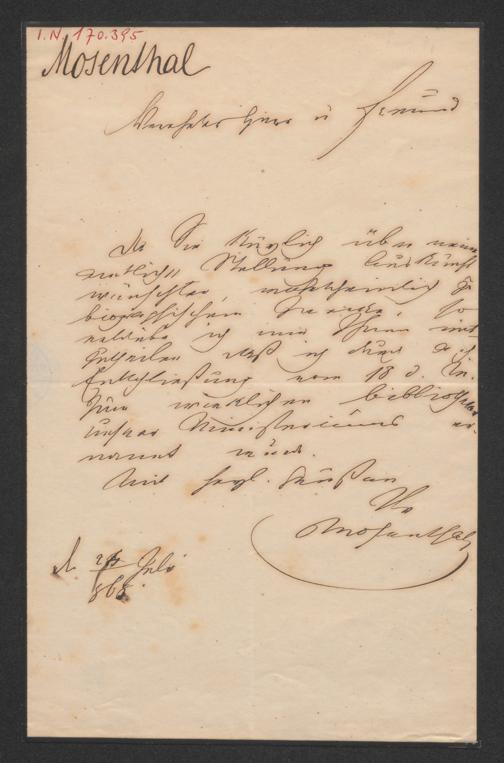 I.N. 170.395
Mosenthal
Verehrter Herr u Freund
Da Sie kürzlich über meine
amtliche Stellung Auskunft
wünschten, wahrscheinlich zu
biographischem Zwecke, so
erlaube ich mir Ihnen mit-
zutheilen daß ich durch a. h.
Entschließung vom 18 d. M.
zum wirklichen Bibliothekar
unseres Ministeriums er-
nannt wurde.
Mit herzl. Grüßen
Ihr
Mosenthal
d. Juli
868